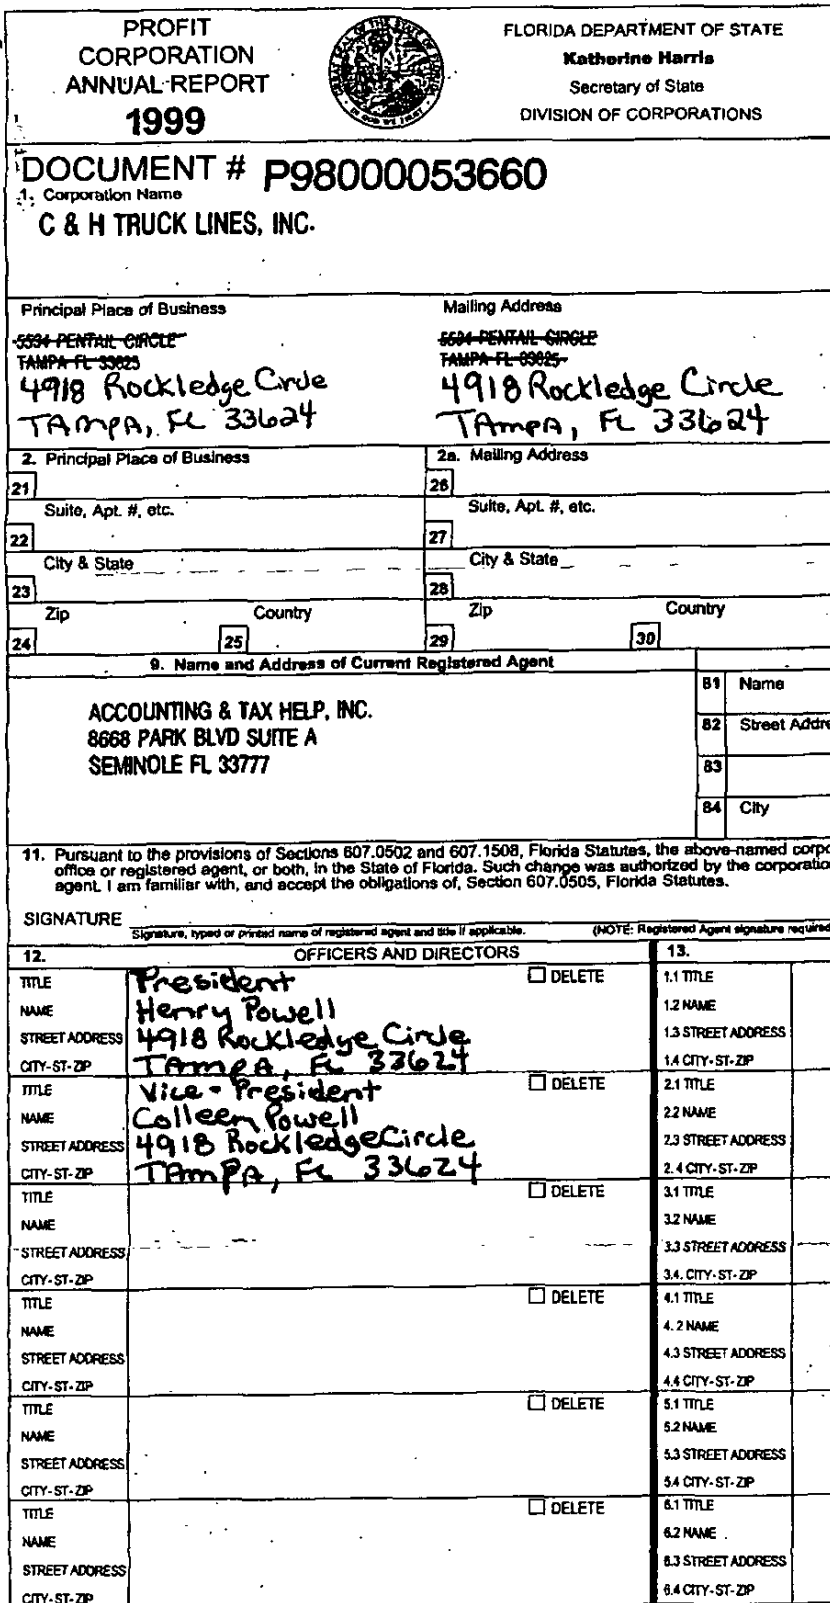 PROFIT
CORPORATION
ANNUAL REPORT
1999
FLORIDA DEPARTMENT OF STATE
Katherine Harris
Secretary of State
DIVISION OF CORPORATIONS
DOCUMENT # P98000053660
1. Corporation Name
C & H TRUCK LINES, INC.
Principal Place of Business
Mailing Address
5534 PENTAIL CIRCLE
TAMPA FL 33625
5534 PENTAIL CIRCLE
TAMPA FL 33625
4918 Rockledge Circle
TAmpA, FL 33624
4918 Rockledge Circle
TAmpA, FL 33624
2. Principal Place of Business
2a. Mailing Address
21
26
Suite, Apt. #, etc.
Suite, Apt. #, etc.
22
27
City & State
City & State
23
28
Zip
Country
Zip
Country
24
25
29
30
9. Name and Address of Current Registered Agent
ACCOUNTING & TAX HELP, INC.
8668 PARK BLVD SUITE A
SEMINOLE FL 33777
81 Name
82 Street Addre
83
84 City
11. Pursuant to the provisions of Sections 607.0502 and 607.1508, Florida Statutes, the above-named corpo
office or registered agent, or both, in the State of Florida. Such change was authorized by the corporatio
agent. I am familiar with, and accept the obligations of, Section 607.0505, Florida Statutes.
SIGNATURE
Signature, typed or printed name of registered agent and title if applicable.
(NOTE: Registered Agent signature required
12.
OFFICERS AND DIRECTORS
13.
TITLE President DELETE
NAME Henry Powell
STREET ADDRESS 4918 Rockledge Circle
CITY-ST-ZIP TAmpA, FL 33624
TITLE Vice-President DELETE
NAME Colleen Powell
STREET ADDRESS 4918 Rockledge Circle
CITY-ST-ZIP TAmpA, FL 33624
TITLE DELETE
NAME
STREET ADDRESS
CITY-ST-ZIP
TITLE DELETE
NAME
STREET ADDRESS
CITY-ST-ZIP
TITLE DELETE
NAME
STREET ADDRESS
CITY-ST-ZIP
TITLE DELETE
NAME
STREET ADDRESS
CITY-ST-ZIP
1.1 TITLE
1.2 NAME
1.3 STREET ADDRESS
1.4 CITY-ST-ZIP
2.1 TITLE
2.2 NAME
2.3 STREET ADDRESS
2.4 CITY-ST-ZIP
3.1 TITLE
3.2 NAME
3.3 STREET ADDRESS
3.4. CITY-ST-ZIP
4.1 TITLE
4.2 NAME
4.3 STREET ADDRESS
4.4 CITY-ST-ZIP
5.1 TITLE
5.2 NAME
5.3 STREET ADDRESS
5.4 CITY-ST-ZIP
6.1 TITLE
6.2 NAME
6.3 STREET ADDRESS
6.4 CITY-ST-ZIP